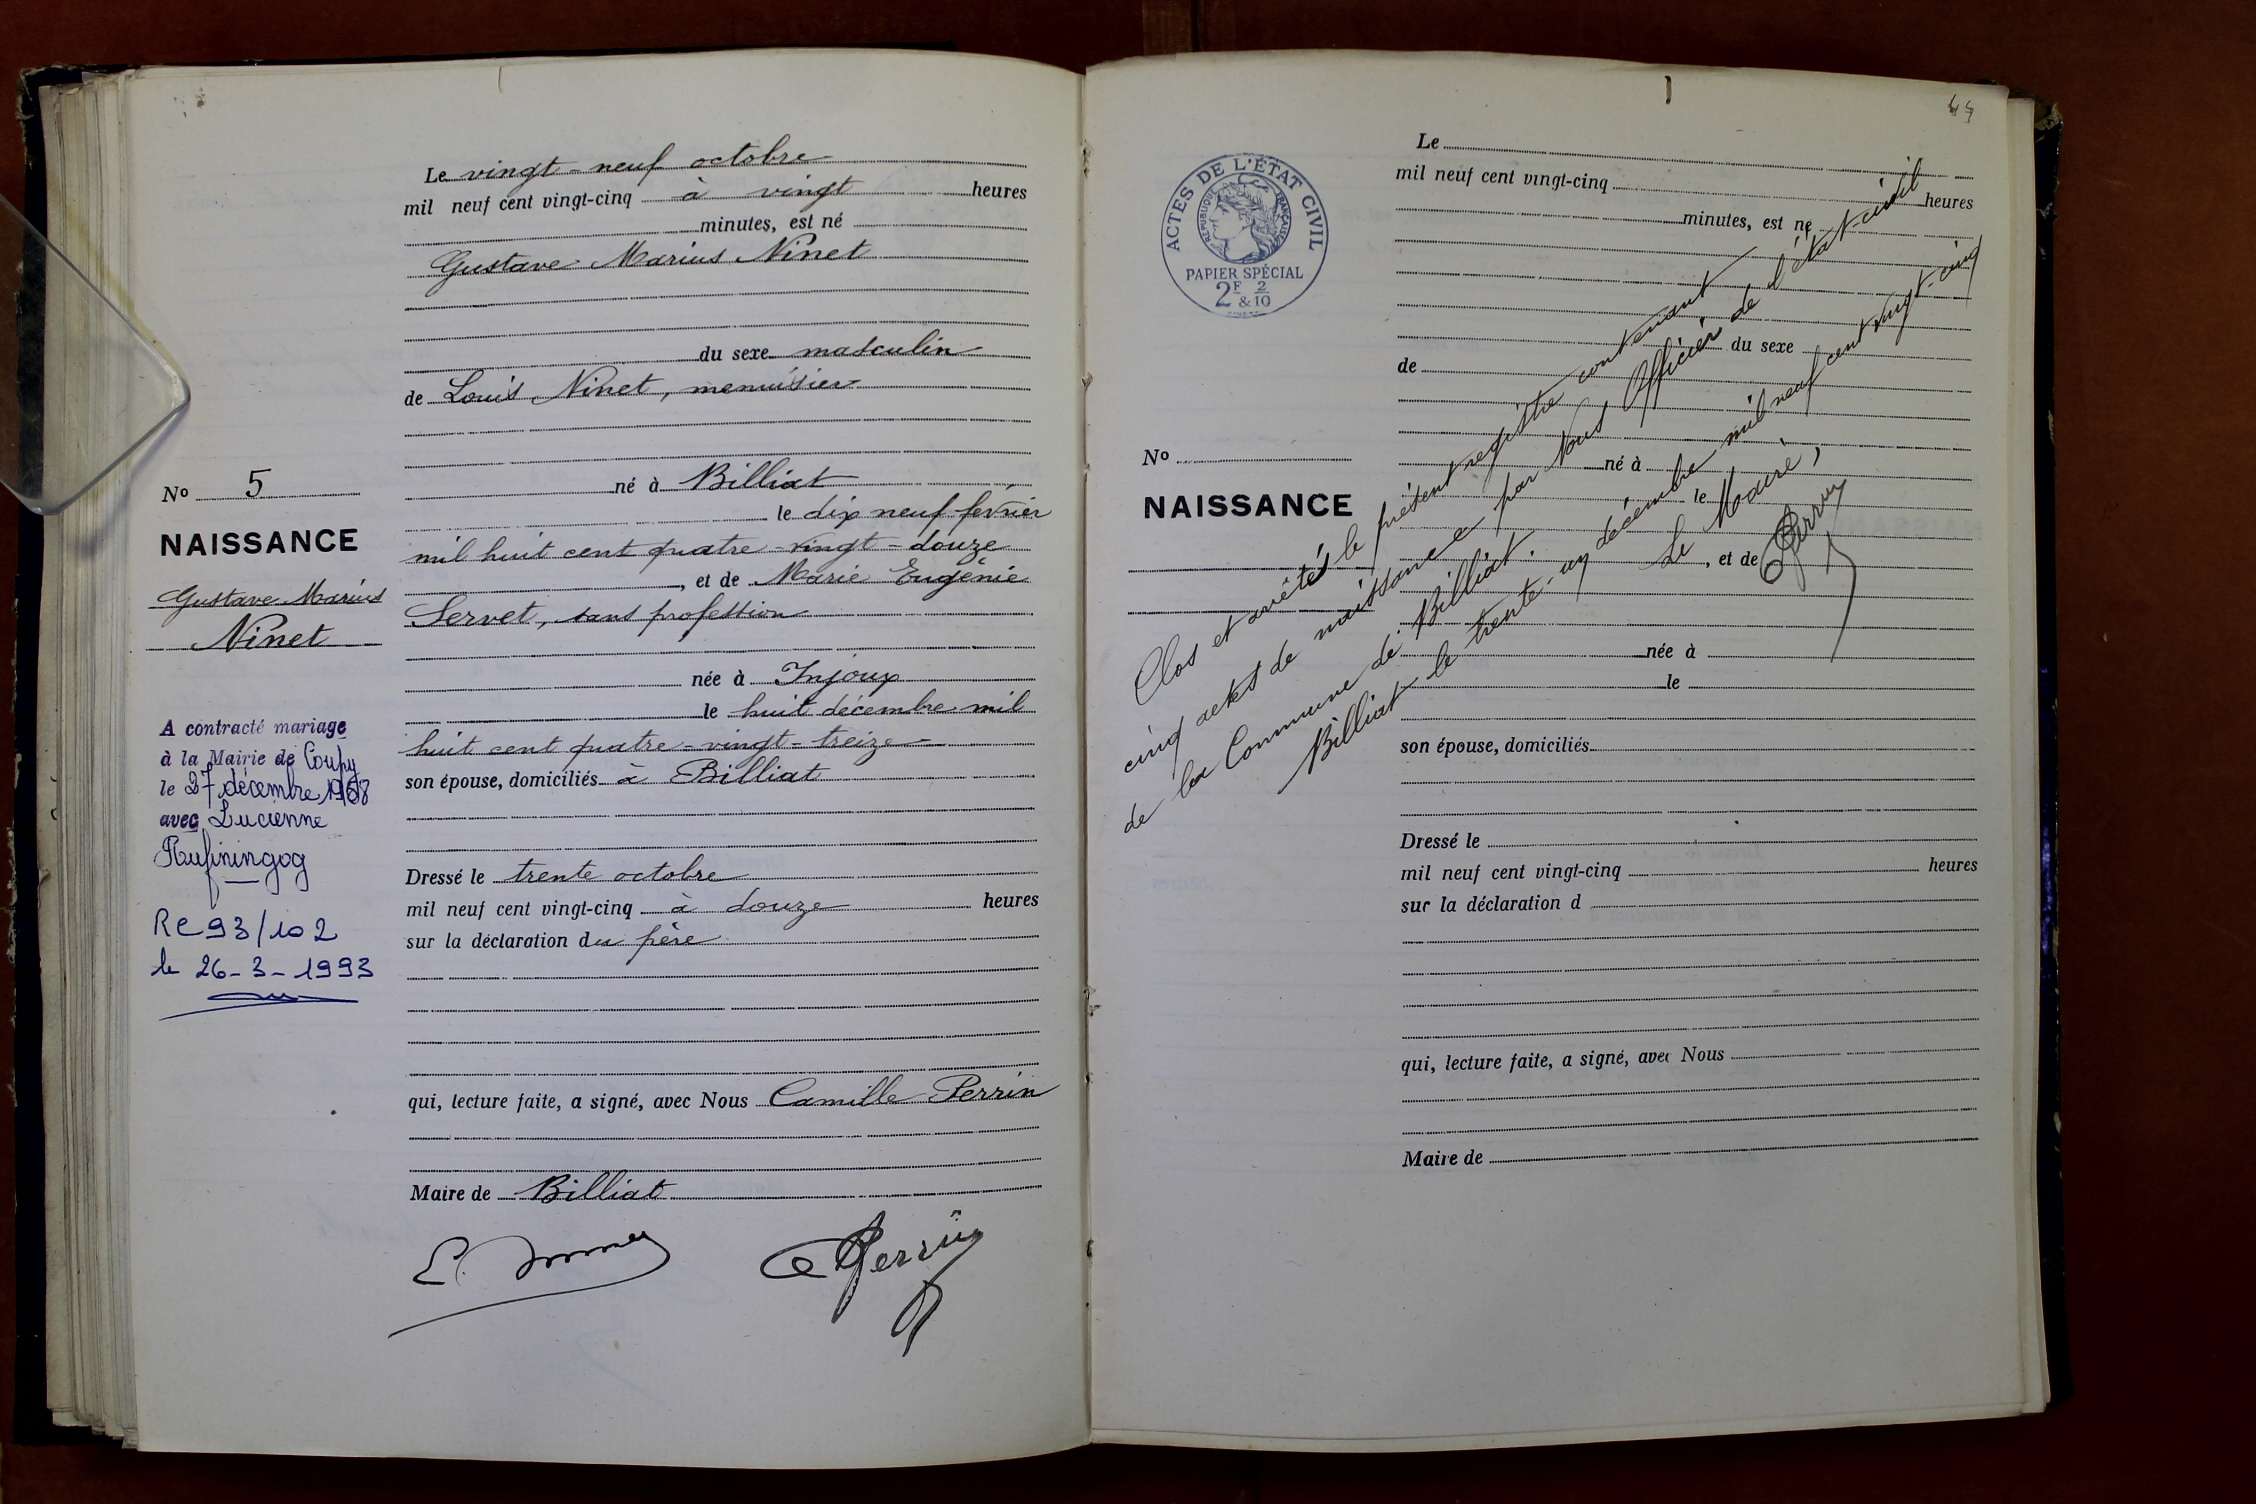 Le vingt-neuf octobre
mil neuf cent vingt-cinq à vingt heures
minutes, est né
Gustave Marius Ninet
du sexe masculin
de Louis Ninet, menuisier
né à Billiat
le dix neuf février
mil huit cent quatre-vingt-douze
, et de Marie Eugénie
Servet, sans profession
née à Injoux
le huit décembre mil
huit cent quatre-vingt-treize
son épouse, domiciliés à Billiat
Dressé le trente octobre
mil neuf cent vingt-cinq à douze heures
sur la déclaration du père
qui, lecture faite, a signé, avec Nous Camille Perrin
Maire de Billiat
Perrin
No 5
NAISSANCE
Gustave Marius
Ninet
A contracté mariage
à la Mairie de Coupy
le 27 décembre 1968
avec Lucienne
RC 93/102
le 26-3-1993
44
ACTES DE L'ÉTAT CIVIL
RÉPUBLIQUE FRANÇAISE
PAPIER SPÉCIAL
2F & 2/10
No
NAISSANCE
Le
mil neuf cent vingt-cinq heures
minutes, est né
du sexe
de
né à
le
, et de
née à
le
son épouse, domiciliés
Dressé le
mil neuf cent vingt-cinq heures
sur la déclaration d
qui, lecture faite, a signé, avec Nous
Maire de
Clos et arrêté le présent registre contenant
cinq actes de naissance par Nous Officier de l'état-civil
de la Commune de Billiat.
Billiat le trente-un décembre mil neuf cent vingt-cinq
Le Maire,
Perrin